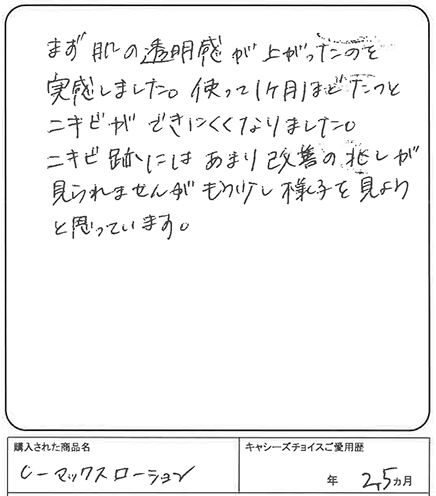 まず肌の透明感が上がったのを
実感しました。使って1ヶ月ほどたつと
ニキビができにくくなりました。
ニキビ跡にはあまり改善の兆しが
見られませんがもう少し様子を見よう
と思っています。
購入された商品名
キャシーズチョイスご愛用歴
シーマックスローション
年 2,5ヵ月